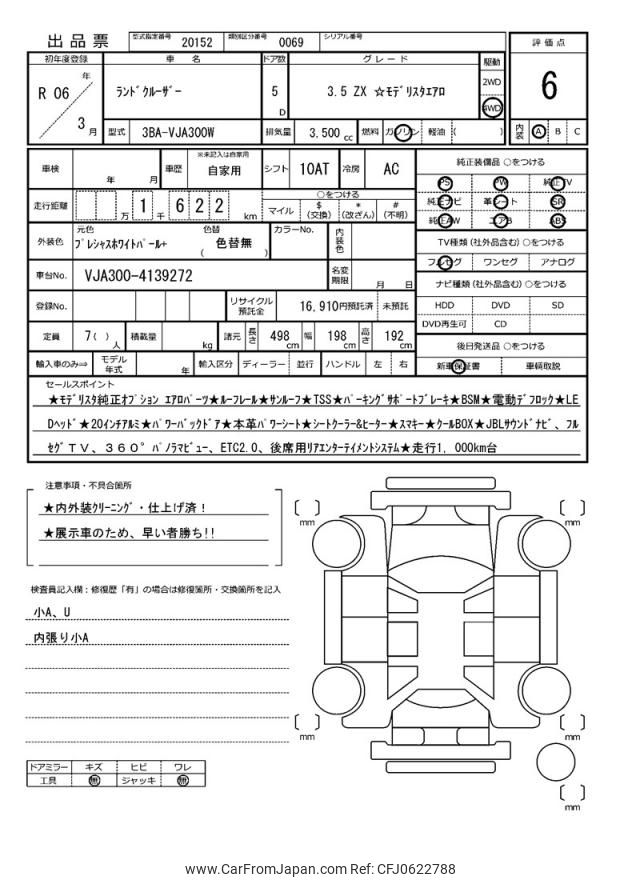 出品票 型式指定番号 20152 類別区分番号 0069 シリアル番号
評価点
6
内装 A B C
初年度登録 車名 ドア数 グレード 駆動
R 06 年 3 月
ﾗﾝﾄﾞｸﾙｰｻﾞｰ 5 D 3.5 ZX ☆ﾓﾃﾞﾘｽﾀｴｱﾛ 2WD
4WD
型式 3BA-VJA300W 排気量 3,500 cc 燃料 ガソリン 軽油 ( )
車検 年 月 車歴 ※未記入は自家用 自家用 シフト 10AT 冷房 AC
走行距離 万 1 千 6 2 2 km
○をつける
マイル $(交換) *(改ざん) #(不明)
外装色 元色 ﾌﾟﾚｼｬｽﾎﾜｲﾄﾊﾟｰﾙ+ 色替 ( 色替無 ) カラーNo. 内装色
車台No. VJA300-4139272 名変期限 月 日
登録No. リサイクル預託金 16,910円預託済 未預託
定員 7( )人 積載量 kg 諸元 長さ 498cm 幅 198cm 高さ 192cm
輸入車のみ⇒ モデル年式 年 輸入区分 ディーラー 並行 ハンドル 左 右
純正装備品 ○をつける
PS PW 純正TV
純正ナビ 革シート SR
純正AW エアB ABS
TV種類 (社外品含む) ○をつける
フルセグ ワンセグ アナログ
ナビ種類 (社外品含む) ○をつける
HDD DVD SD
DVD再生可 CD
後日発送品 ○をつける
新車保証書 車輌取説
セールスポイント
★ﾓﾃﾞﾘｽﾀ純正ｵﾌﾟｼｮﾝ ｴｱﾛﾊﾟｰﾂ★ﾙｰﾌﾚｰﾙ★ｻﾝﾙｰﾌ★TSS★ﾊﾟｰｷﾝｸﾞｻﾎﾟｰﾄﾌﾞﾚｰｷ★BSM★電動ﾃﾞﾌﾛｯｸ★LE
Dﾍｯﾄﾞ★20ｲﾝﾁｱﾙﾐ★ﾊﾟﾜｰﾊﾞｯｸﾄﾞｱ★本革ﾊﾟﾜｰｼｰﾄ★ｼｰﾄｸｰﾗｰ&ﾋｰﾀｰ★ｽﾏｷｰ★ｸｰﾙBOX★JBLｻｳﾝﾄﾞﾅﾋﾞ、ﾌﾙ
ｾｸﾞＴＶ、３６０°ﾊﾟﾉﾗﾏﾋﾞｭｰ、ETC2.0、後席用ﾘｱｴﾝﾀｰﾃｲﾒﾝﾄｼｽﾃﾑ★走行1，000km台
注意事項・不具合箇所
★内外装ｸﾘｰﾆﾝｸﾞ・仕上げ済！
★展示車のため、早い者勝ち!!
検査員記入欄：修復歴「有」の場合は修復箇所・交換箇所を記入
小A、U
内張り小A
ドアミラー キズ ヒビ ワレ
工具 無 ジャッキ 無
mm
mm
mm
mm
mm
www.CarFromJapan.com Ref: CFJ0622788